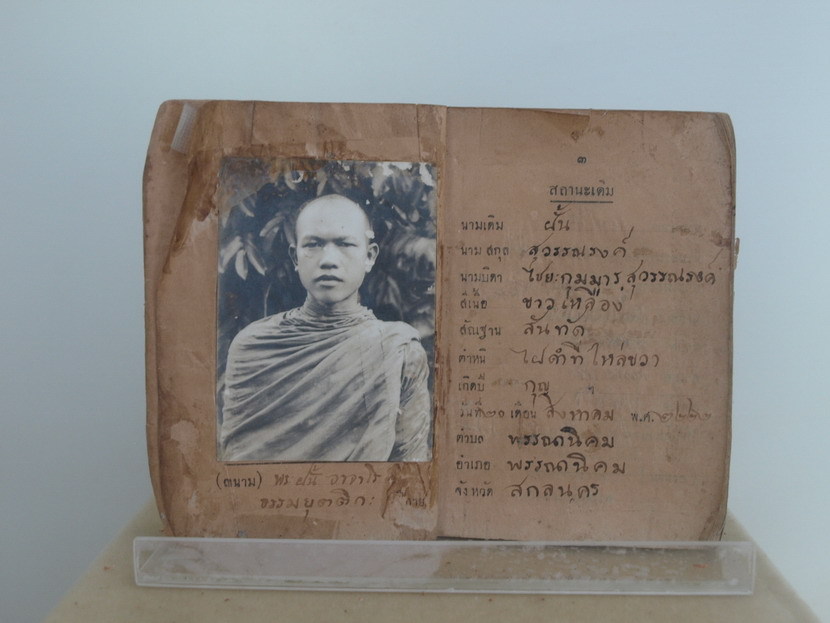 (๓นาม) พระ ฝั้น อาจาโร
ธรรมยุตติกะ
๓
สถานะเดิม
นามเดิม ฝั้น
นามสกุล สุวรรณรงค์
นามบิดา ไชยะกุมมาร สุวรรณรงค์
สีเนื้อ ขาวเหลือง
สัณฐาน สันทัด
ตำหนิ ไฝดำที่ไหล่ขวา
เกิดปี กุญ
วันที่ ๒๐ เดือน สิงหาคม พ.ศ.
ตำบล พรรณนิคม
อำเภอ พรรณนิคม
จังหวัด สกลนคร